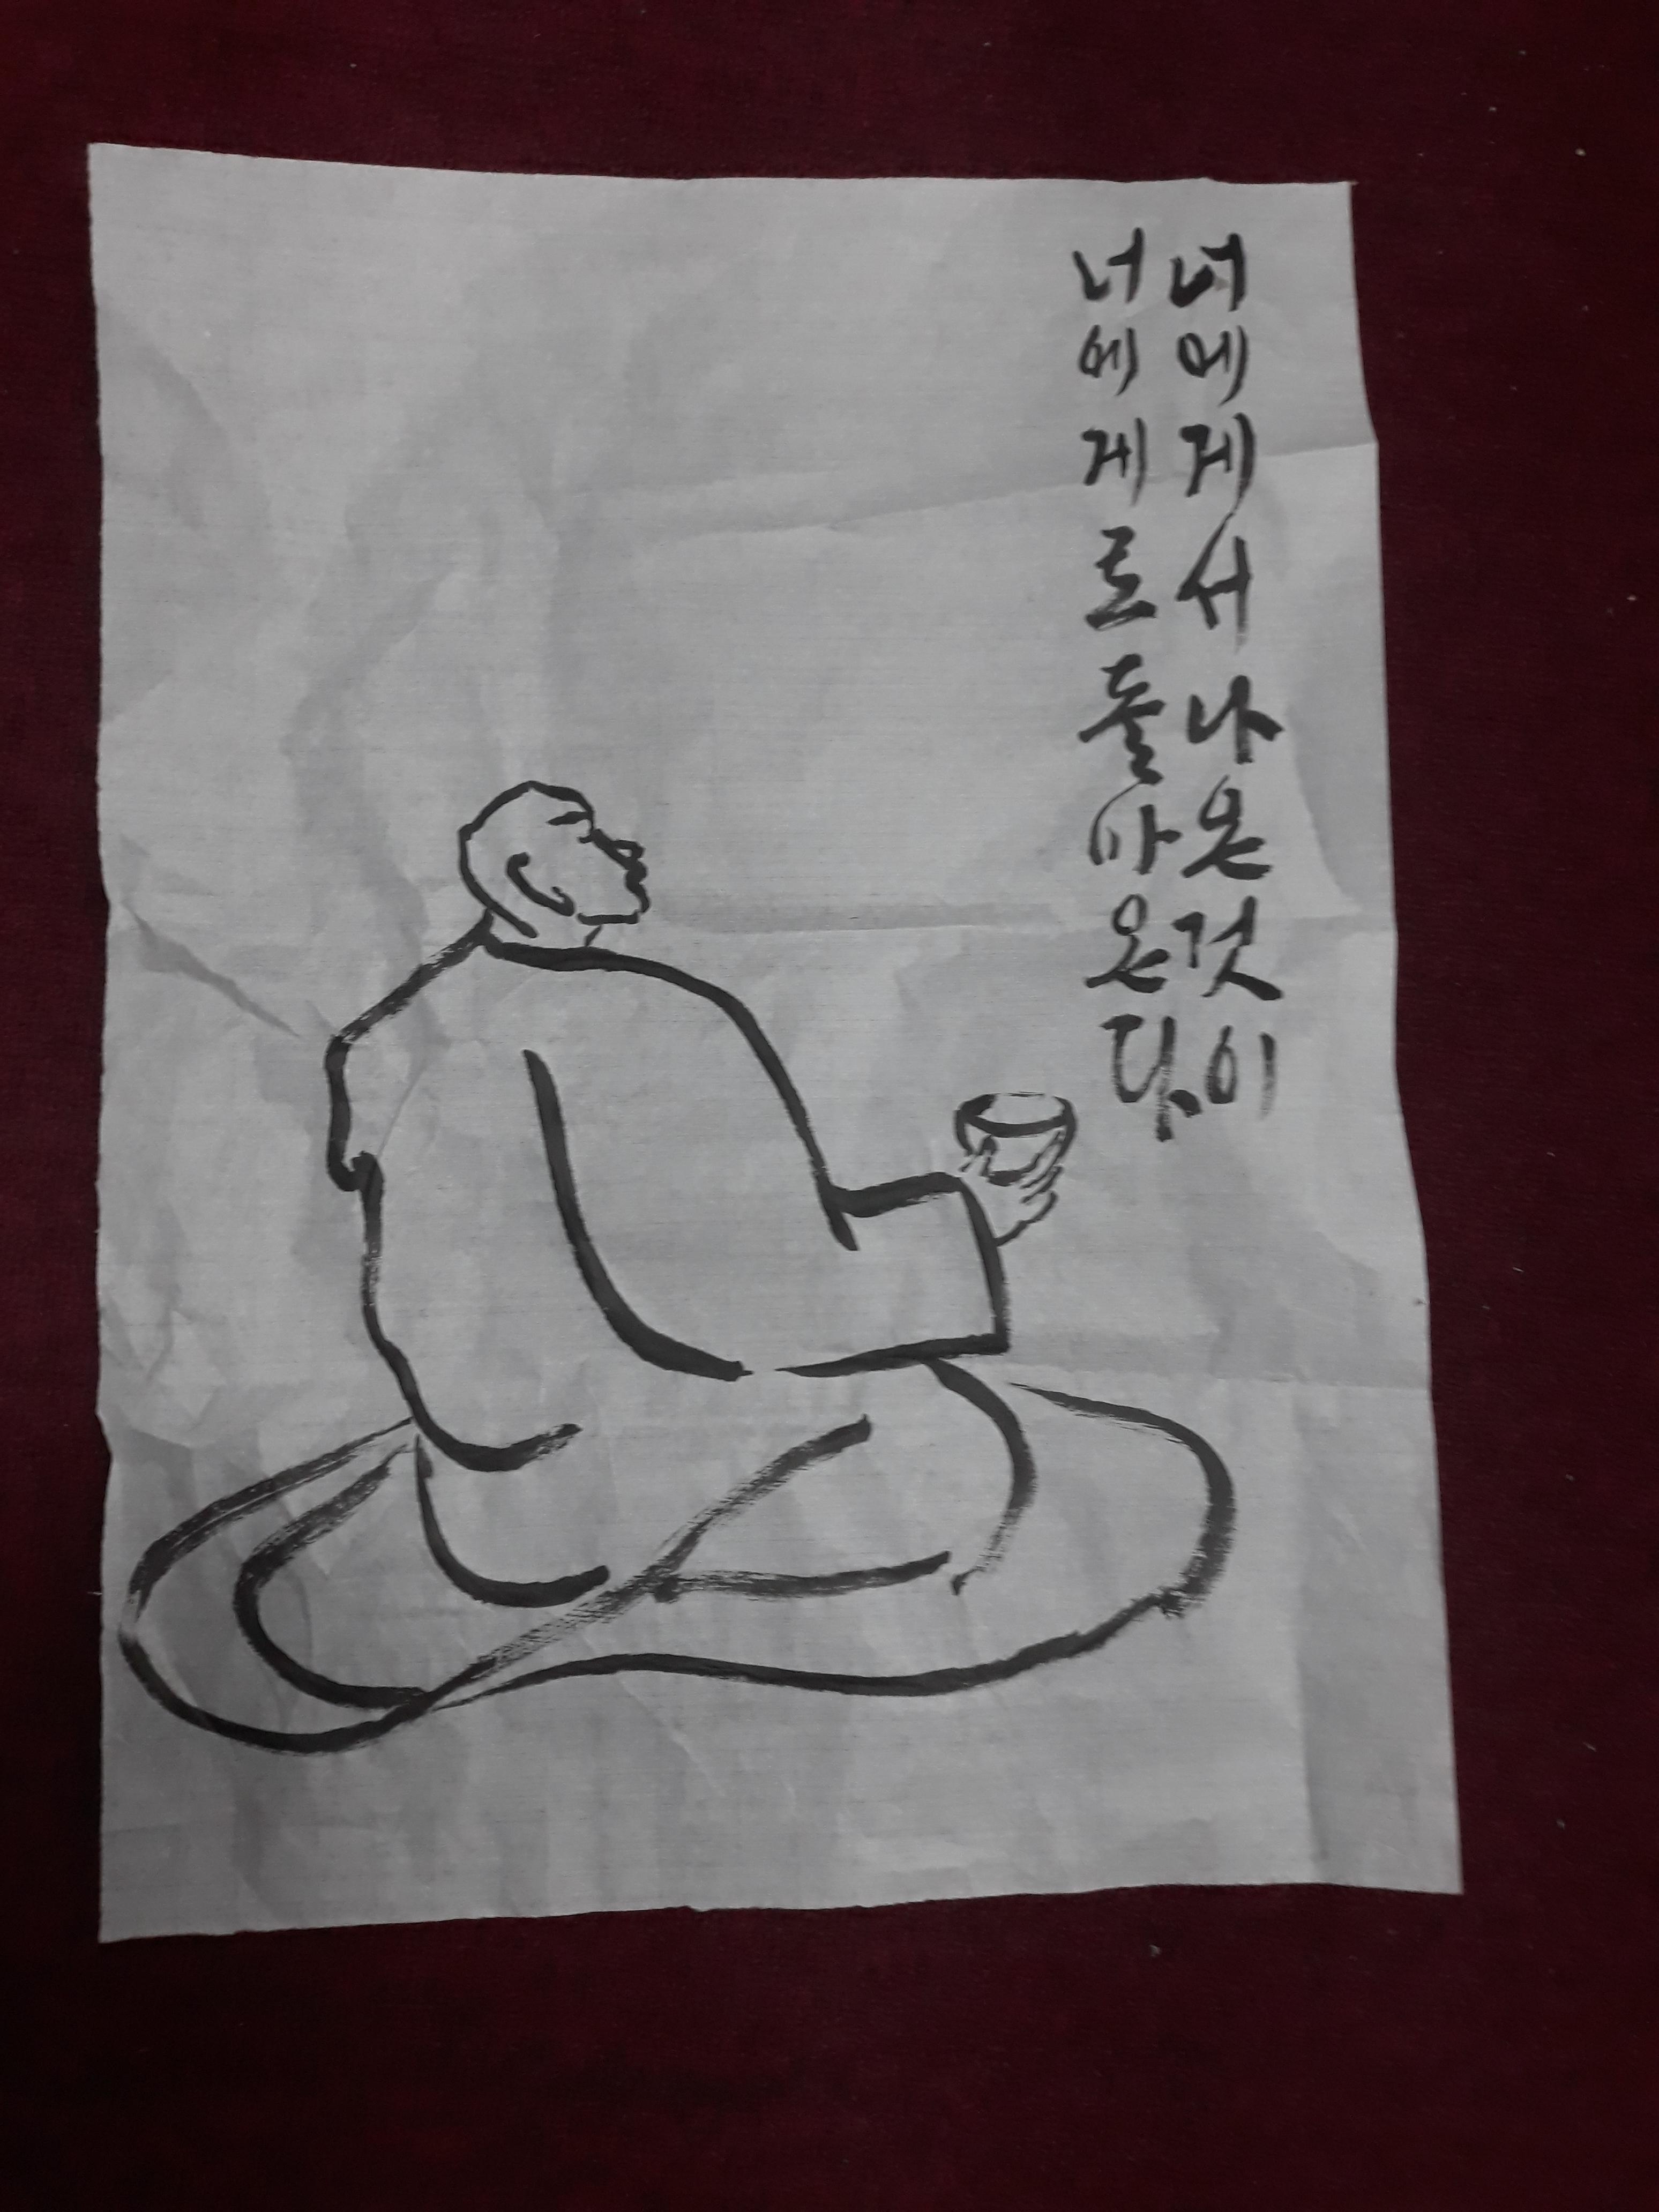 너에게서나온것이
너에게로돌아온다